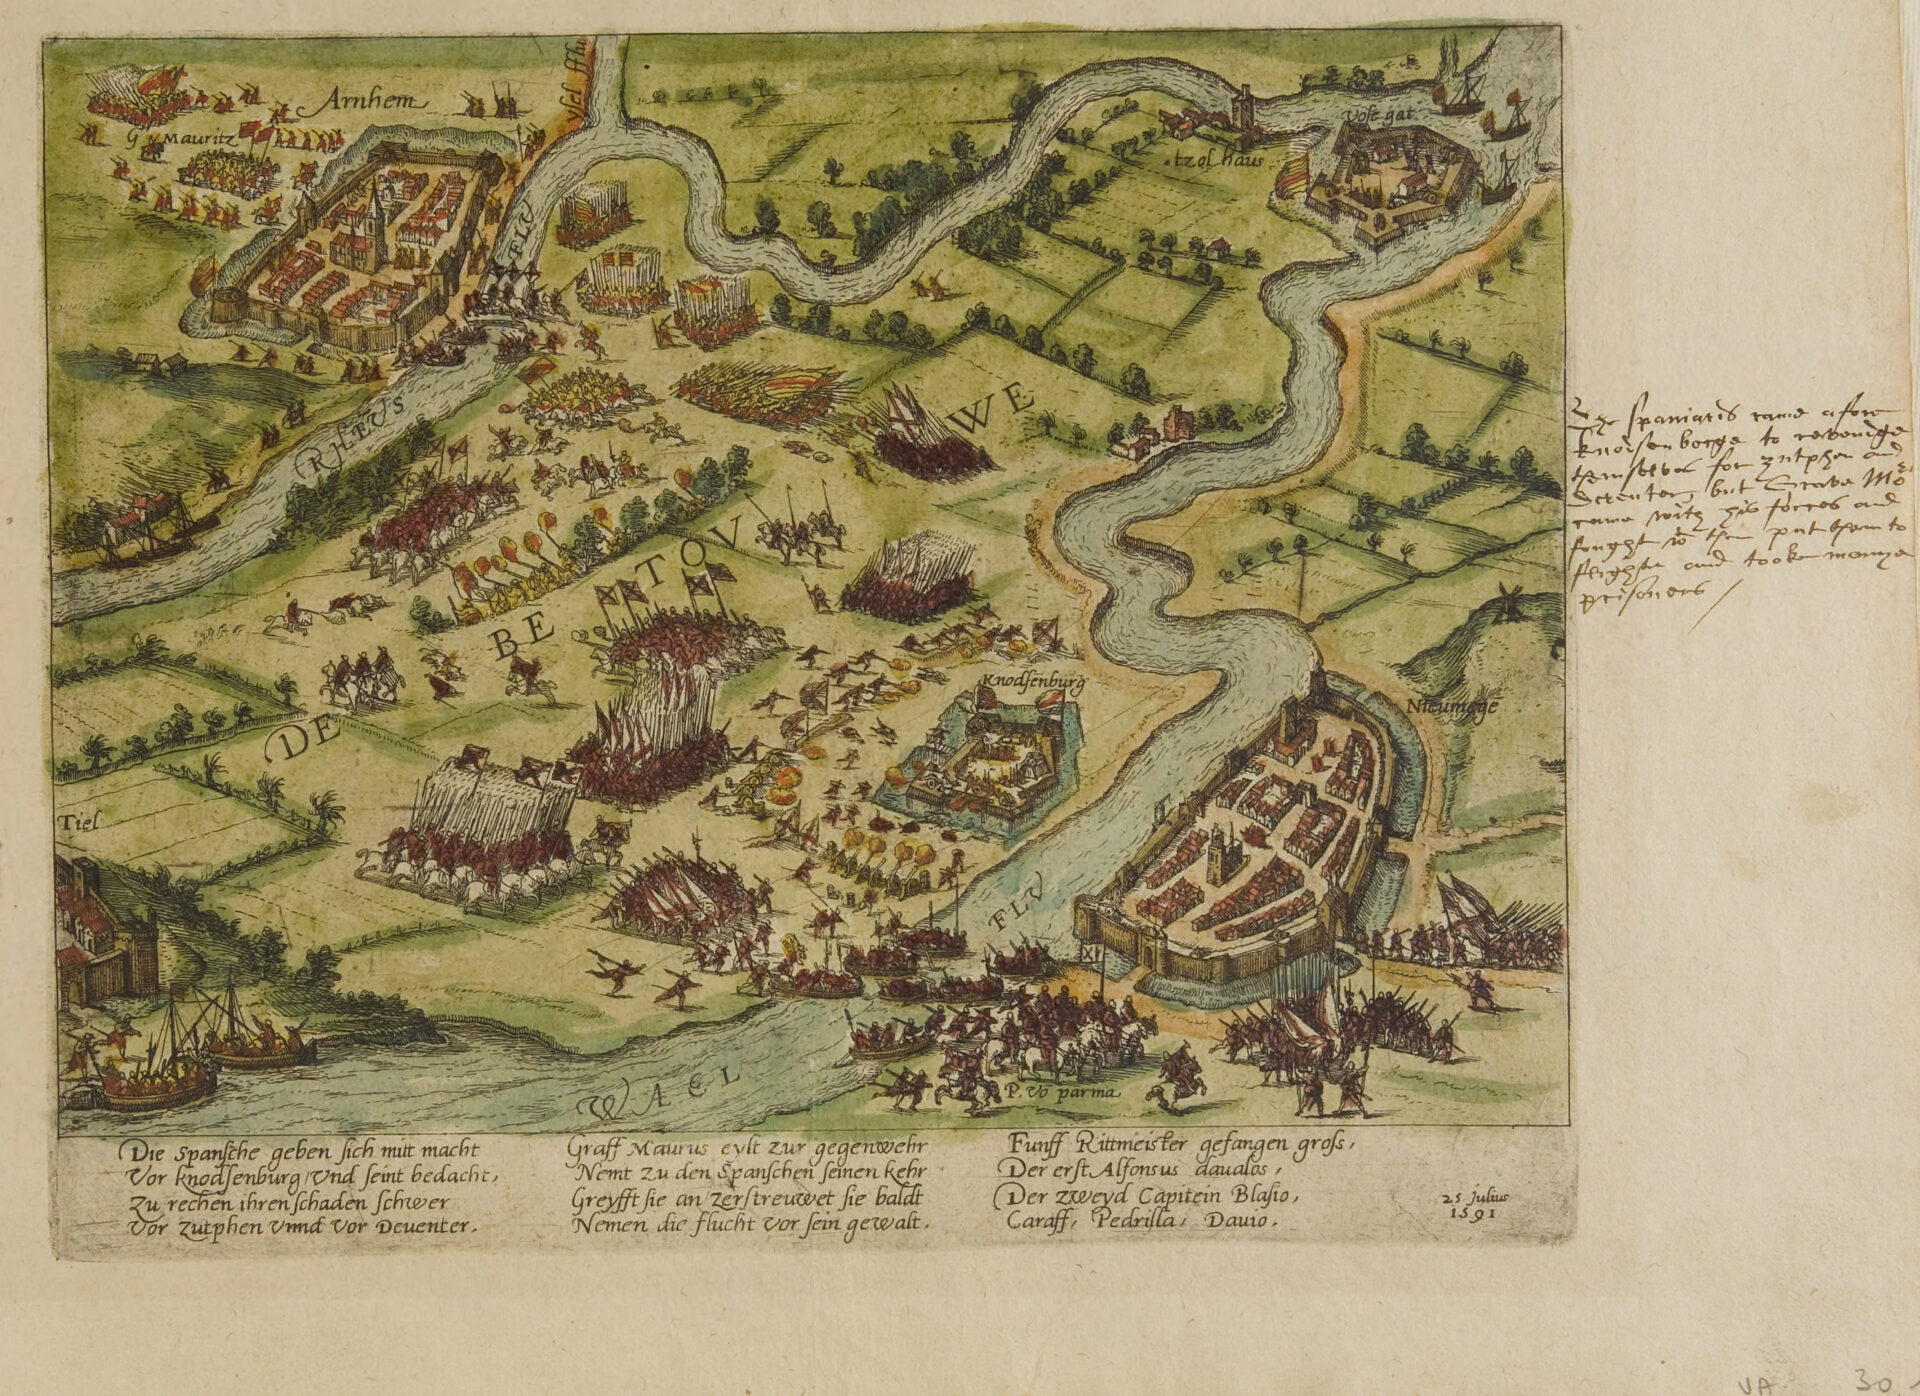 Arnhem
G. v. Mauritz
ysel fflu
FLV
RHEVS
Vosz gat
tzol haus
WE
DE BE TOV
Knodsenburg
Nieumege
Tiel
FLV
XI
WAEL
P. vō parma
The spaniards came afore
Knodsenborge to revendge
themselves for zutphen and
Deventer, but Grave Mō
came with his forces and
fought wt them put them to
flight and tooke manye
prisoners /
Die Spansche geben sich mitt macht
Vor knodsenburg, Vnd seint bedacht,
Zu rechen ihren schaden schwer
Vor Zutphen Vnnd Vor Deuenter.
Graff Maurus eylt zur gegenwehr
Nemt zu den Spanschen seinen kehr
Greyfft sie an zerstreuwet sie baldt
Nemen die flucht vor sein gewalt.
Funff Rittmeister gefangen gross,
Der erst Alfonsus daualos,
Der zweyd Capitein Blasio,
Caraff, Pedrilla, Dauio.
25 Julius
1591
VA 30